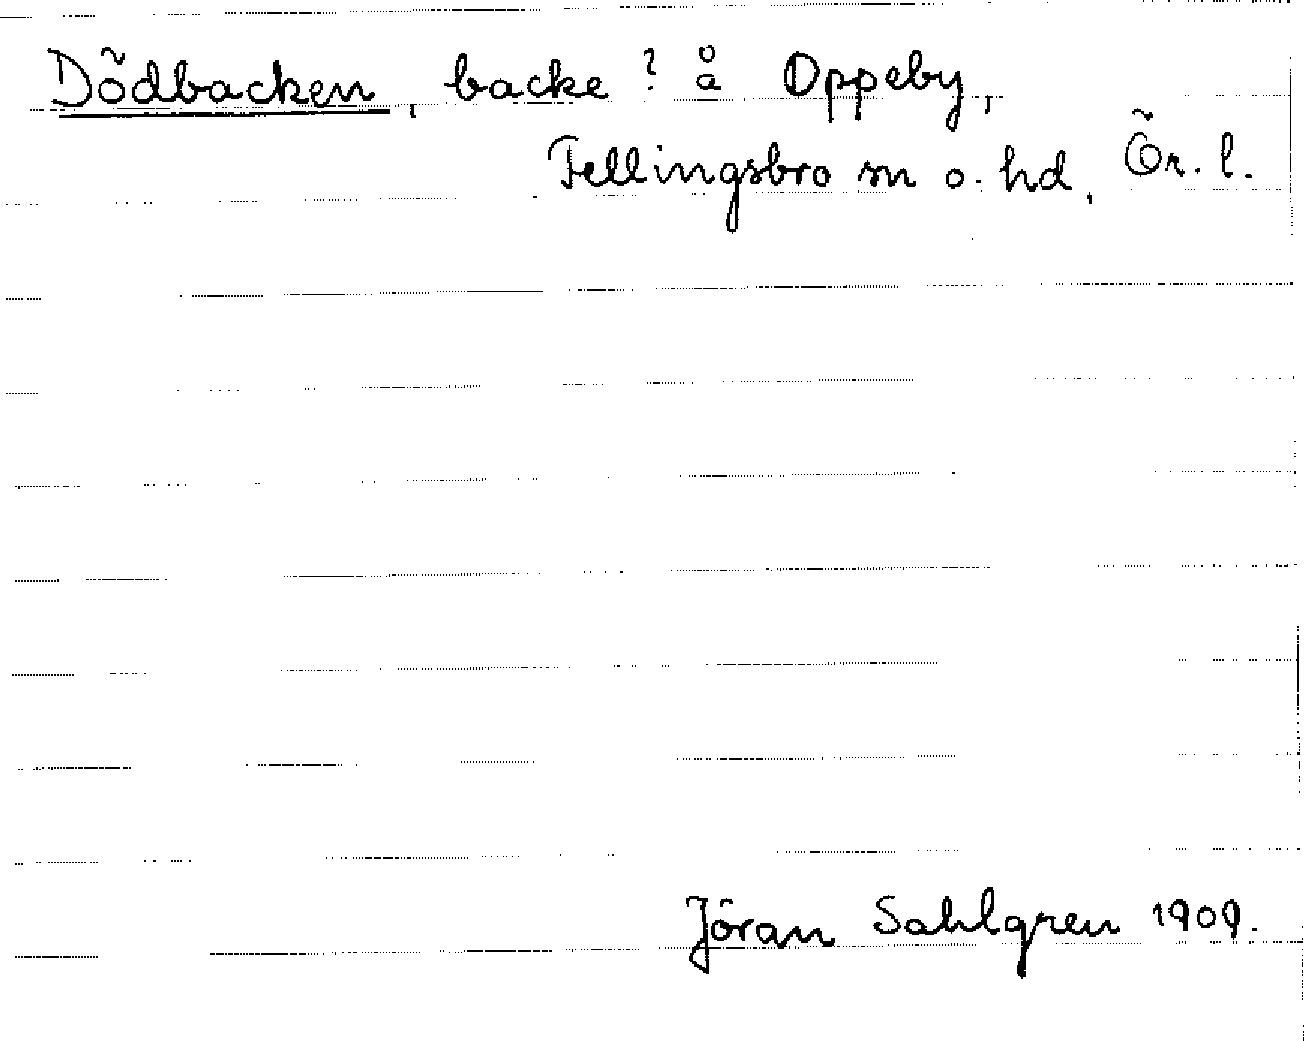 Dödbacken, backe? å Oppeby,
Fellingsbro sn o. hd, Ör. l.
Jöran Sahlgren 1909.